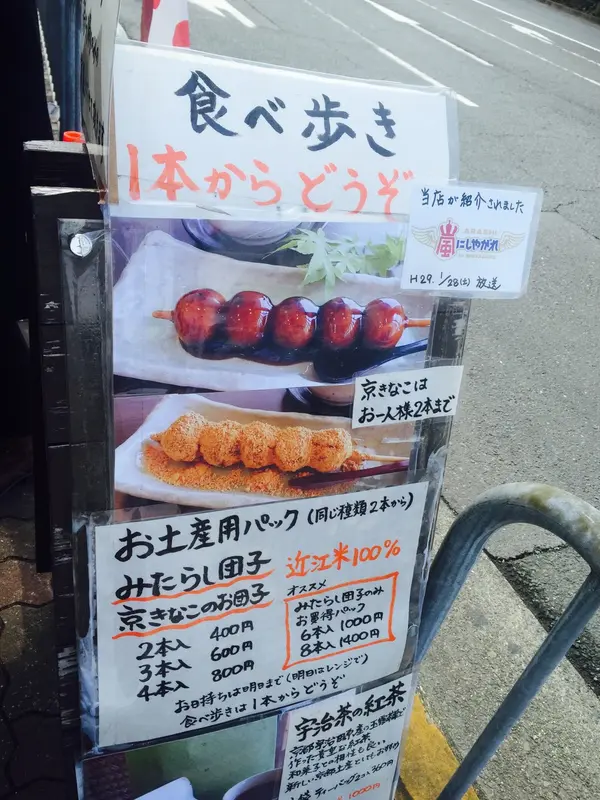 食べ歩き
1本からどうぞ
当店が紹介されました
嵐にしやがれ
H29. 1/28(土) 放送
京きなこは
お一人様2本まで
お土産用パック(同じ種類2本から)
みたらし団子
京きなこのお団子
近江米100%
2本入 400円
3本入 600円
4本入 800円
オススメ
みたらし団子のみ
お買得パック
6本入 1000円
8本入 1400円
お日持ちは明日まで(明日はレンジで)
食べ歩きは1本からどうぞ
宇治茶の紅茶
作った貴重な紅茶
和菓子との相性も良い
ティーバッグ2ヶ 360円
1000円